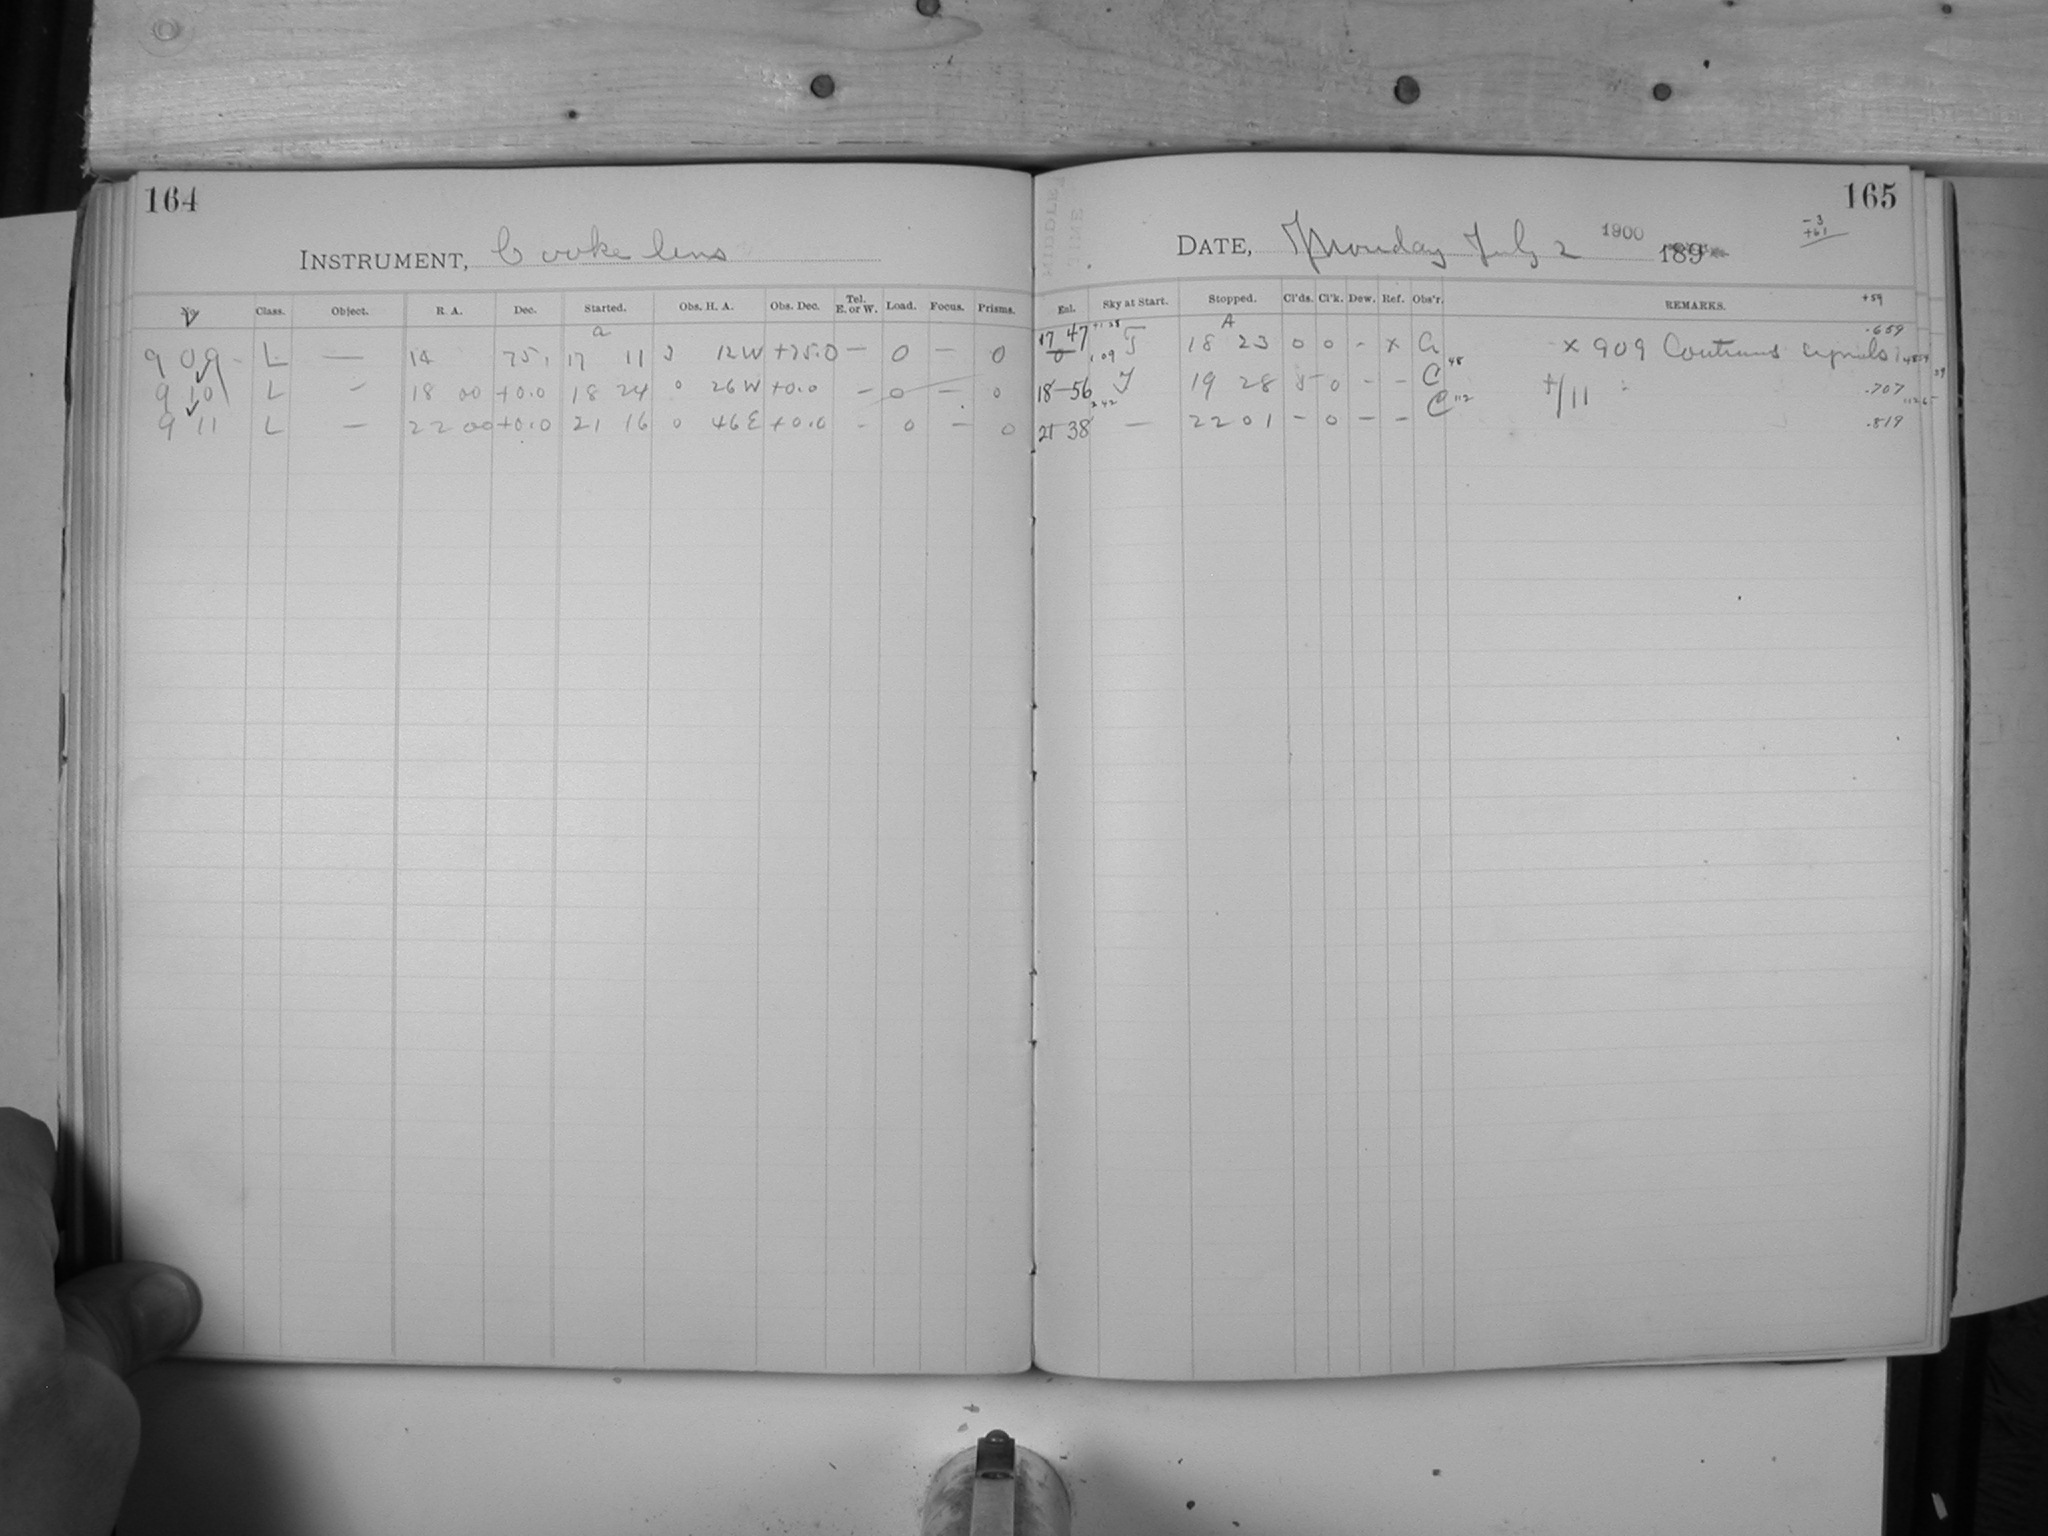 164
INSTRUMENT, Cooke lens
No. Class. Object. R. A. Dec. Started. Obs. H. A. Obs. Dec. Tel. E. or W. Load. Focus. Prisms.
a
909 - L — 14 75, 17 11 3 12W +75.0 — 0 — 0
910 L — 18 00 +0.0 18 24 0 26W +0.0 — 0 — 0
911 L — 22 00 +0.0 21 16 0 46E +0.0 - 0 — 0
165
-3
+61
DATE, Monday July 2 1900 189
Enl. Sky at Start. Stopped. Cl'ds. Cl'k. Dew. Ref. Obs'r. REMARKS. +59
A
17 47 18 23 0 0 - x x 909 Contains .659
1.09 48
18-56 19 28 5 0 - - C +/11 .707
2 42 112
21 38 — 22 01 - 0 - - C .819